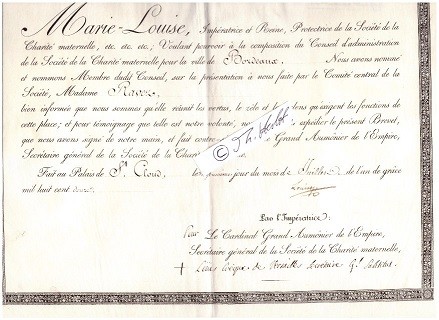 Marie-Louise, Impératrice et Reine, Protectrice de la Société de la
Charité maternelle, etc. etc. etc.; Voulant pourvoir à la composition du Conseil d'administration
de la Société de la Charité maternelle pour la ville de Bordeaux. Nous avons nommé
et nommons Membre dudit Conseil, sur la présentation à nous faite par le Comité central de la
Société, Madame
bien informée que nous sommes qu'elle réunit les vertus, le zèle et les tens qu'exigent les fonctions de
cette place; et pour témoignage que telle est notre volonté, nous expédier le présent Brevet,
que nous avons signé de notre main, et fait contre Grand Aumônier de l'Empire,
Secrétaire général de la Société de la Char
© Th. Herbst
Fait au Palais de St. Cloud, le premier jour du mois de de l'an de grâce
mil huit cent douze.
Louise
Par l'Impératrice:
Pour Le Cardinal Grand Aumônier de l'Empire,
Secrétaire général de la Société de la Charité maternelle,
+ Louis évêque de Versailles Secrétaire Gl.